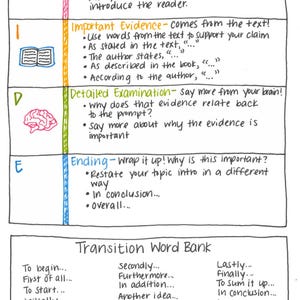 introduce the reader.
I
Important Evidence - comes from the text!
• Use words from the text to support your claim
• As stated in the text, "..."
• The author states, "..."
• As described in the book, "..."
• According to the author, "..."
D
Detailed Examination - say more from your brain!
• Why does that evidence relate back
to the prompt?
• Say more about why the evidence is
important
E
Ending - Wrap it up! Why is this important?
• Restate your topic intro in a different
way
• In conclusion...
• Overall...
Transition Word Bank
To begin... Secondly... Lastly...
First of all... Furthermore... Finally...
To start... In addition... To sum it up...
Another idea... In conclusion...